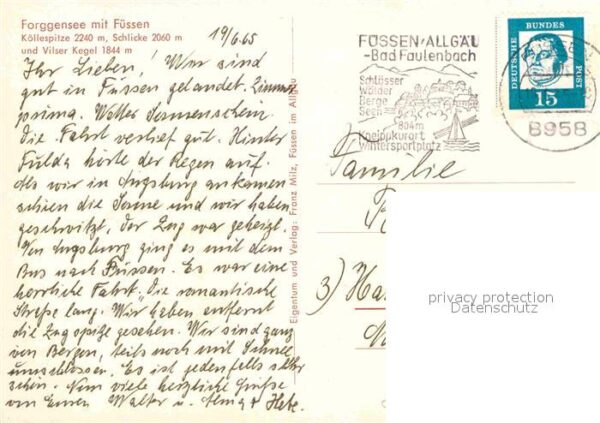 Forggensee mit Füssen
Köllespitze 2240 m, Schlicke 2060 m
und Vilser Kegel 1844 m
19/6.65
Ihr Lieben! Wir sind
gut in Füssen gelandet. Zimmer
prima. Wetter Sonnenschein.
Die Fahrt verlief gut. Hinter
Fulda hörte der Regen auf.
Als wir in Augsburg ankamen
schien die Sonne und wir haben
geschwitzt, der Zug war geheizt.
Von Augsburg ging es mit dem
Bus nach Füssen. Es war eine
herrliche Fahrt. Die romantische
Straße lang. Wir haben entfernt
die Zugspitze gesehen. Wir sind ganz
von Bergen, teils noch mit Schnee
umschlossen. Es ist jedenfalls sehr
schön. Nun viele herzliche Grüße
von Euren Walter u.
Eigentum und Verlag: Franz Milz, Füssen im Allgäu
FÜSSEN/ALLGÄU
-Bad Faulenbach
Schlösser
Wälder
Berge
Seen
804m
Kneippkurort
Wintersportplatz
DEUTSCHE BUNDES POST
15
8958
Familie
3)
privacy protection
Datenschutz